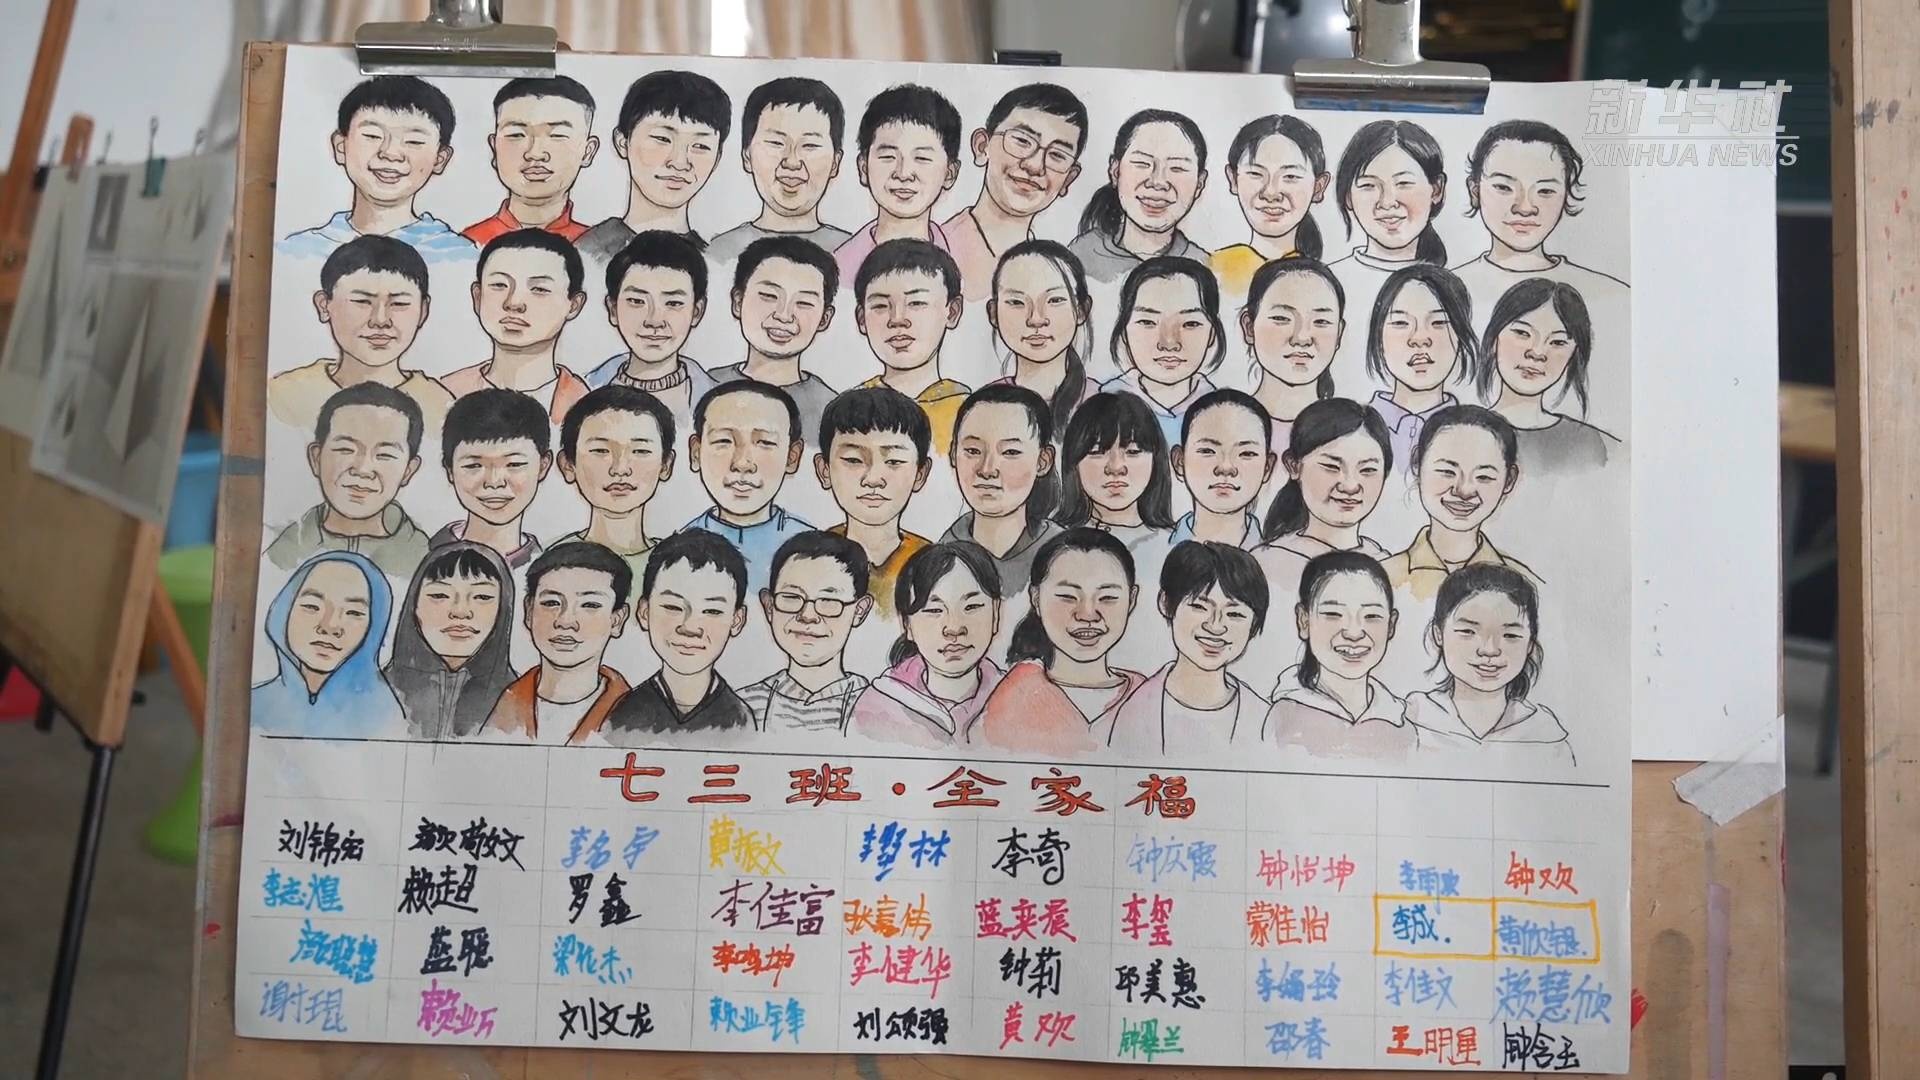 新华社
XINHUA NEWS
七三班·全家福
刘锦宏 李名宇 黄振文 李林 李奇 钟庆霞 钟怡坤 李雨欢 钟欢
李志煌 赖超 罗鑫 李佳富 张嘉伟 蓝奕宸 李玺 蒙佳怡 李成. 黄欣锶.
颜聪慧 蓝聪 梁化杰 李鸣坤 李健华 钟莉 邱美惠 李嫦玲 李佳文 赖慧欣
谢琨 赖业万 刘文龙 赖业锋 刘颂强 黄欢 钟翠兰 邵春 王明星 钟含玉